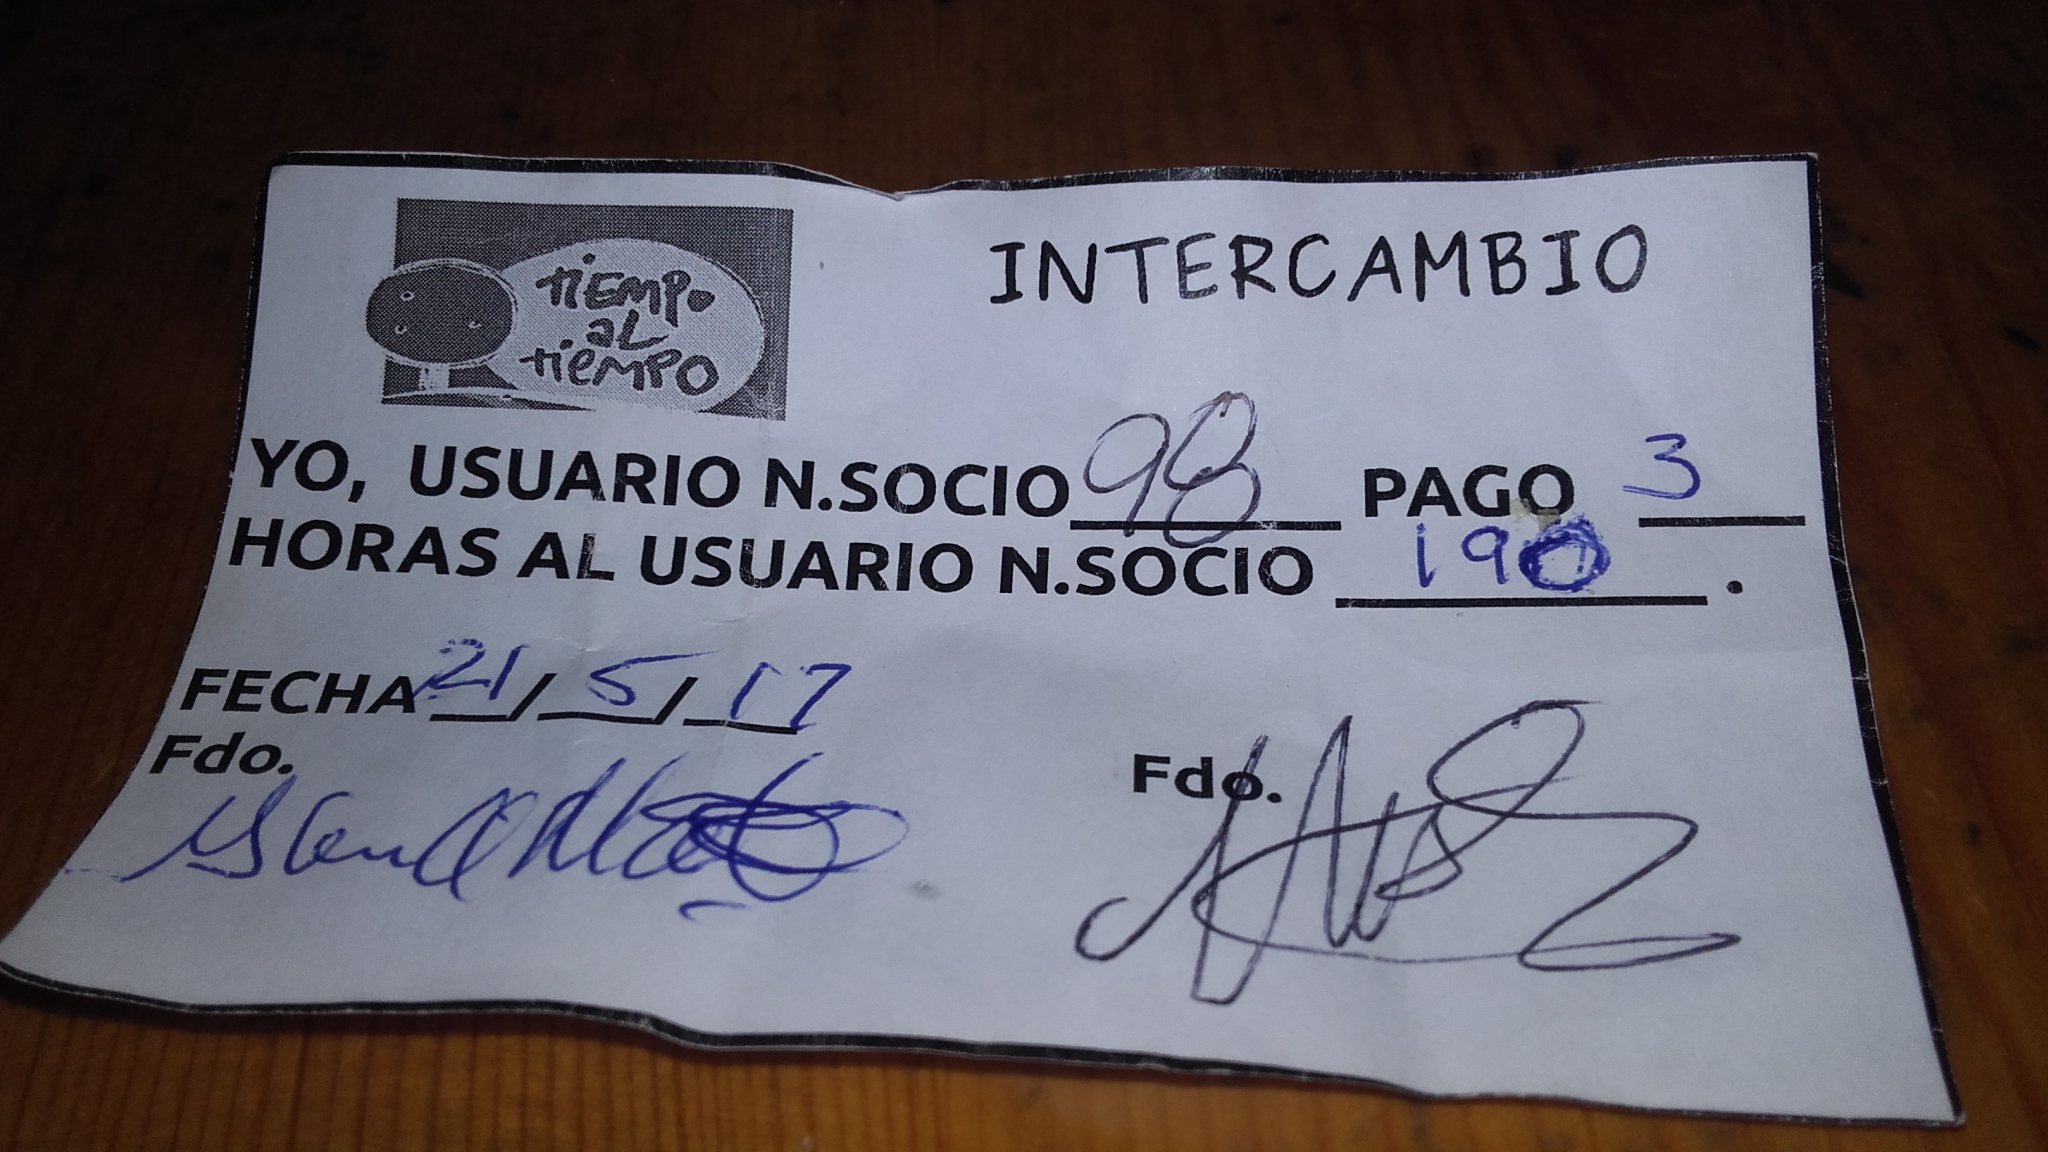 TIEMPO
AL
TIEMPO
INTERCAMBIO
YO, USUARIO N.SOCIO 98 PAGO 3
HORAS AL USUARIO N.SOCIO 190 .
FECHA 21/5/17
Fdo. Fdo.